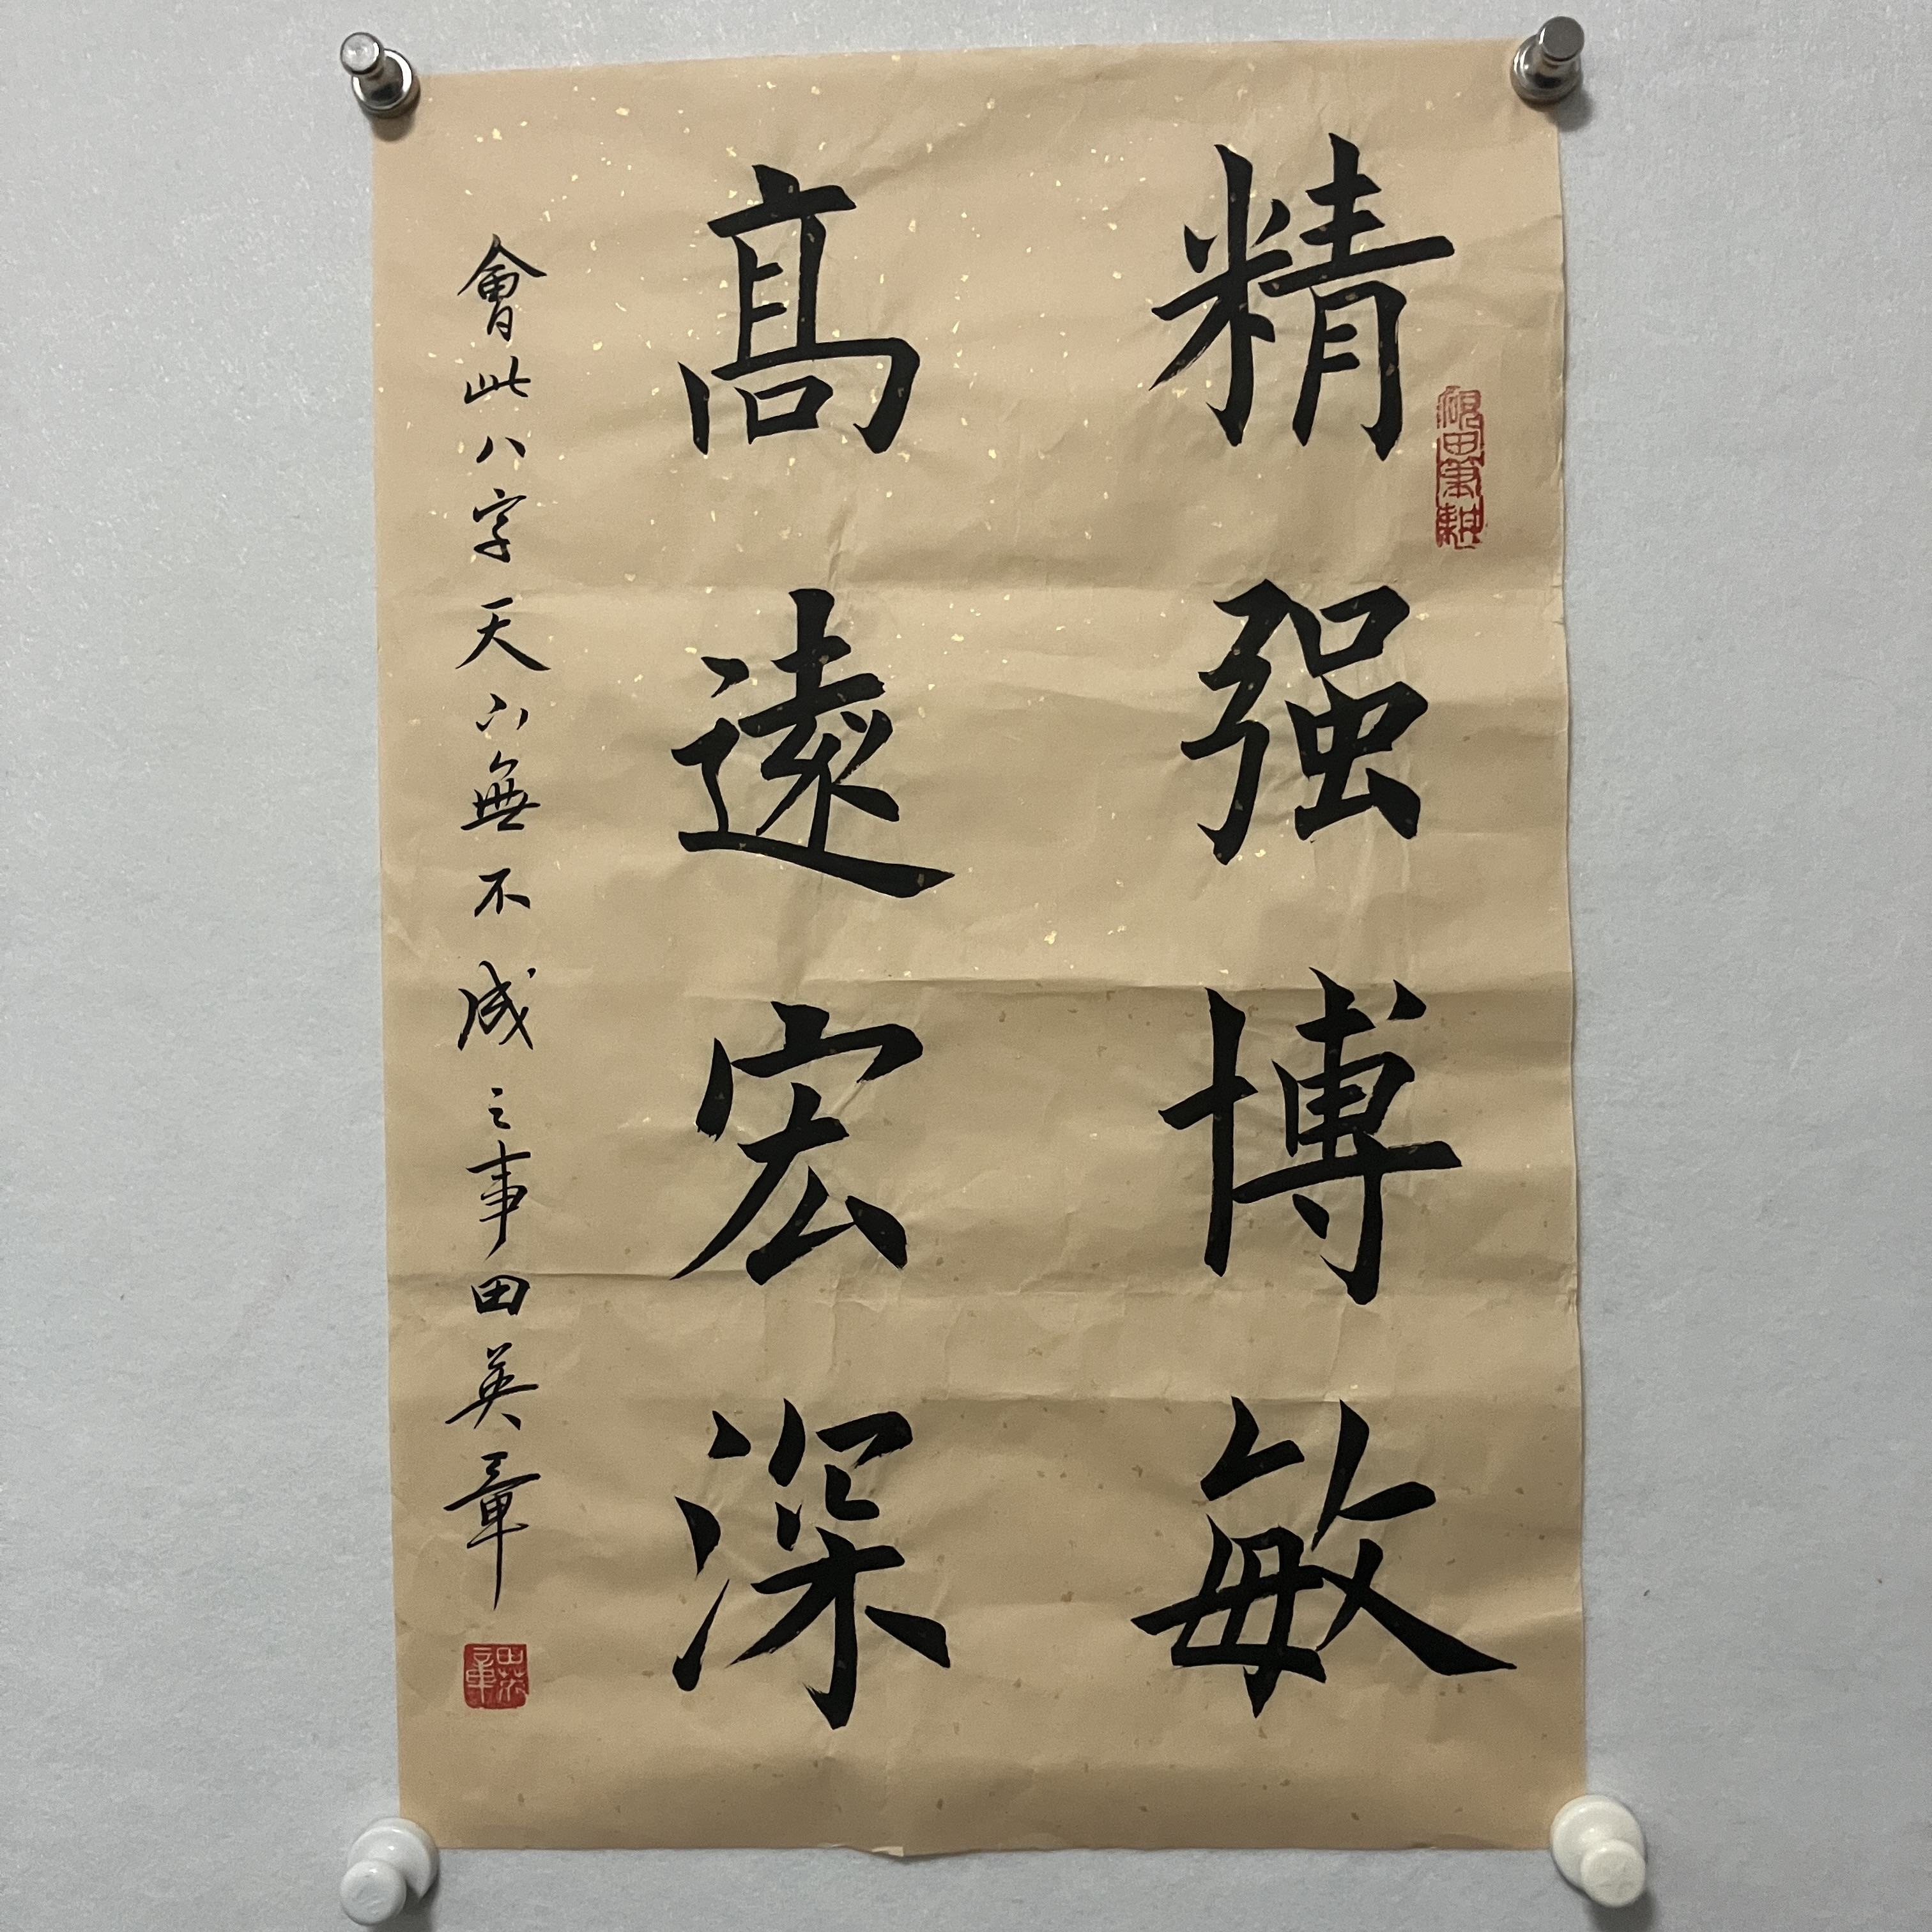 精强博敏
髙遠宏深
會此八字天下無不成之事田英章
田英章